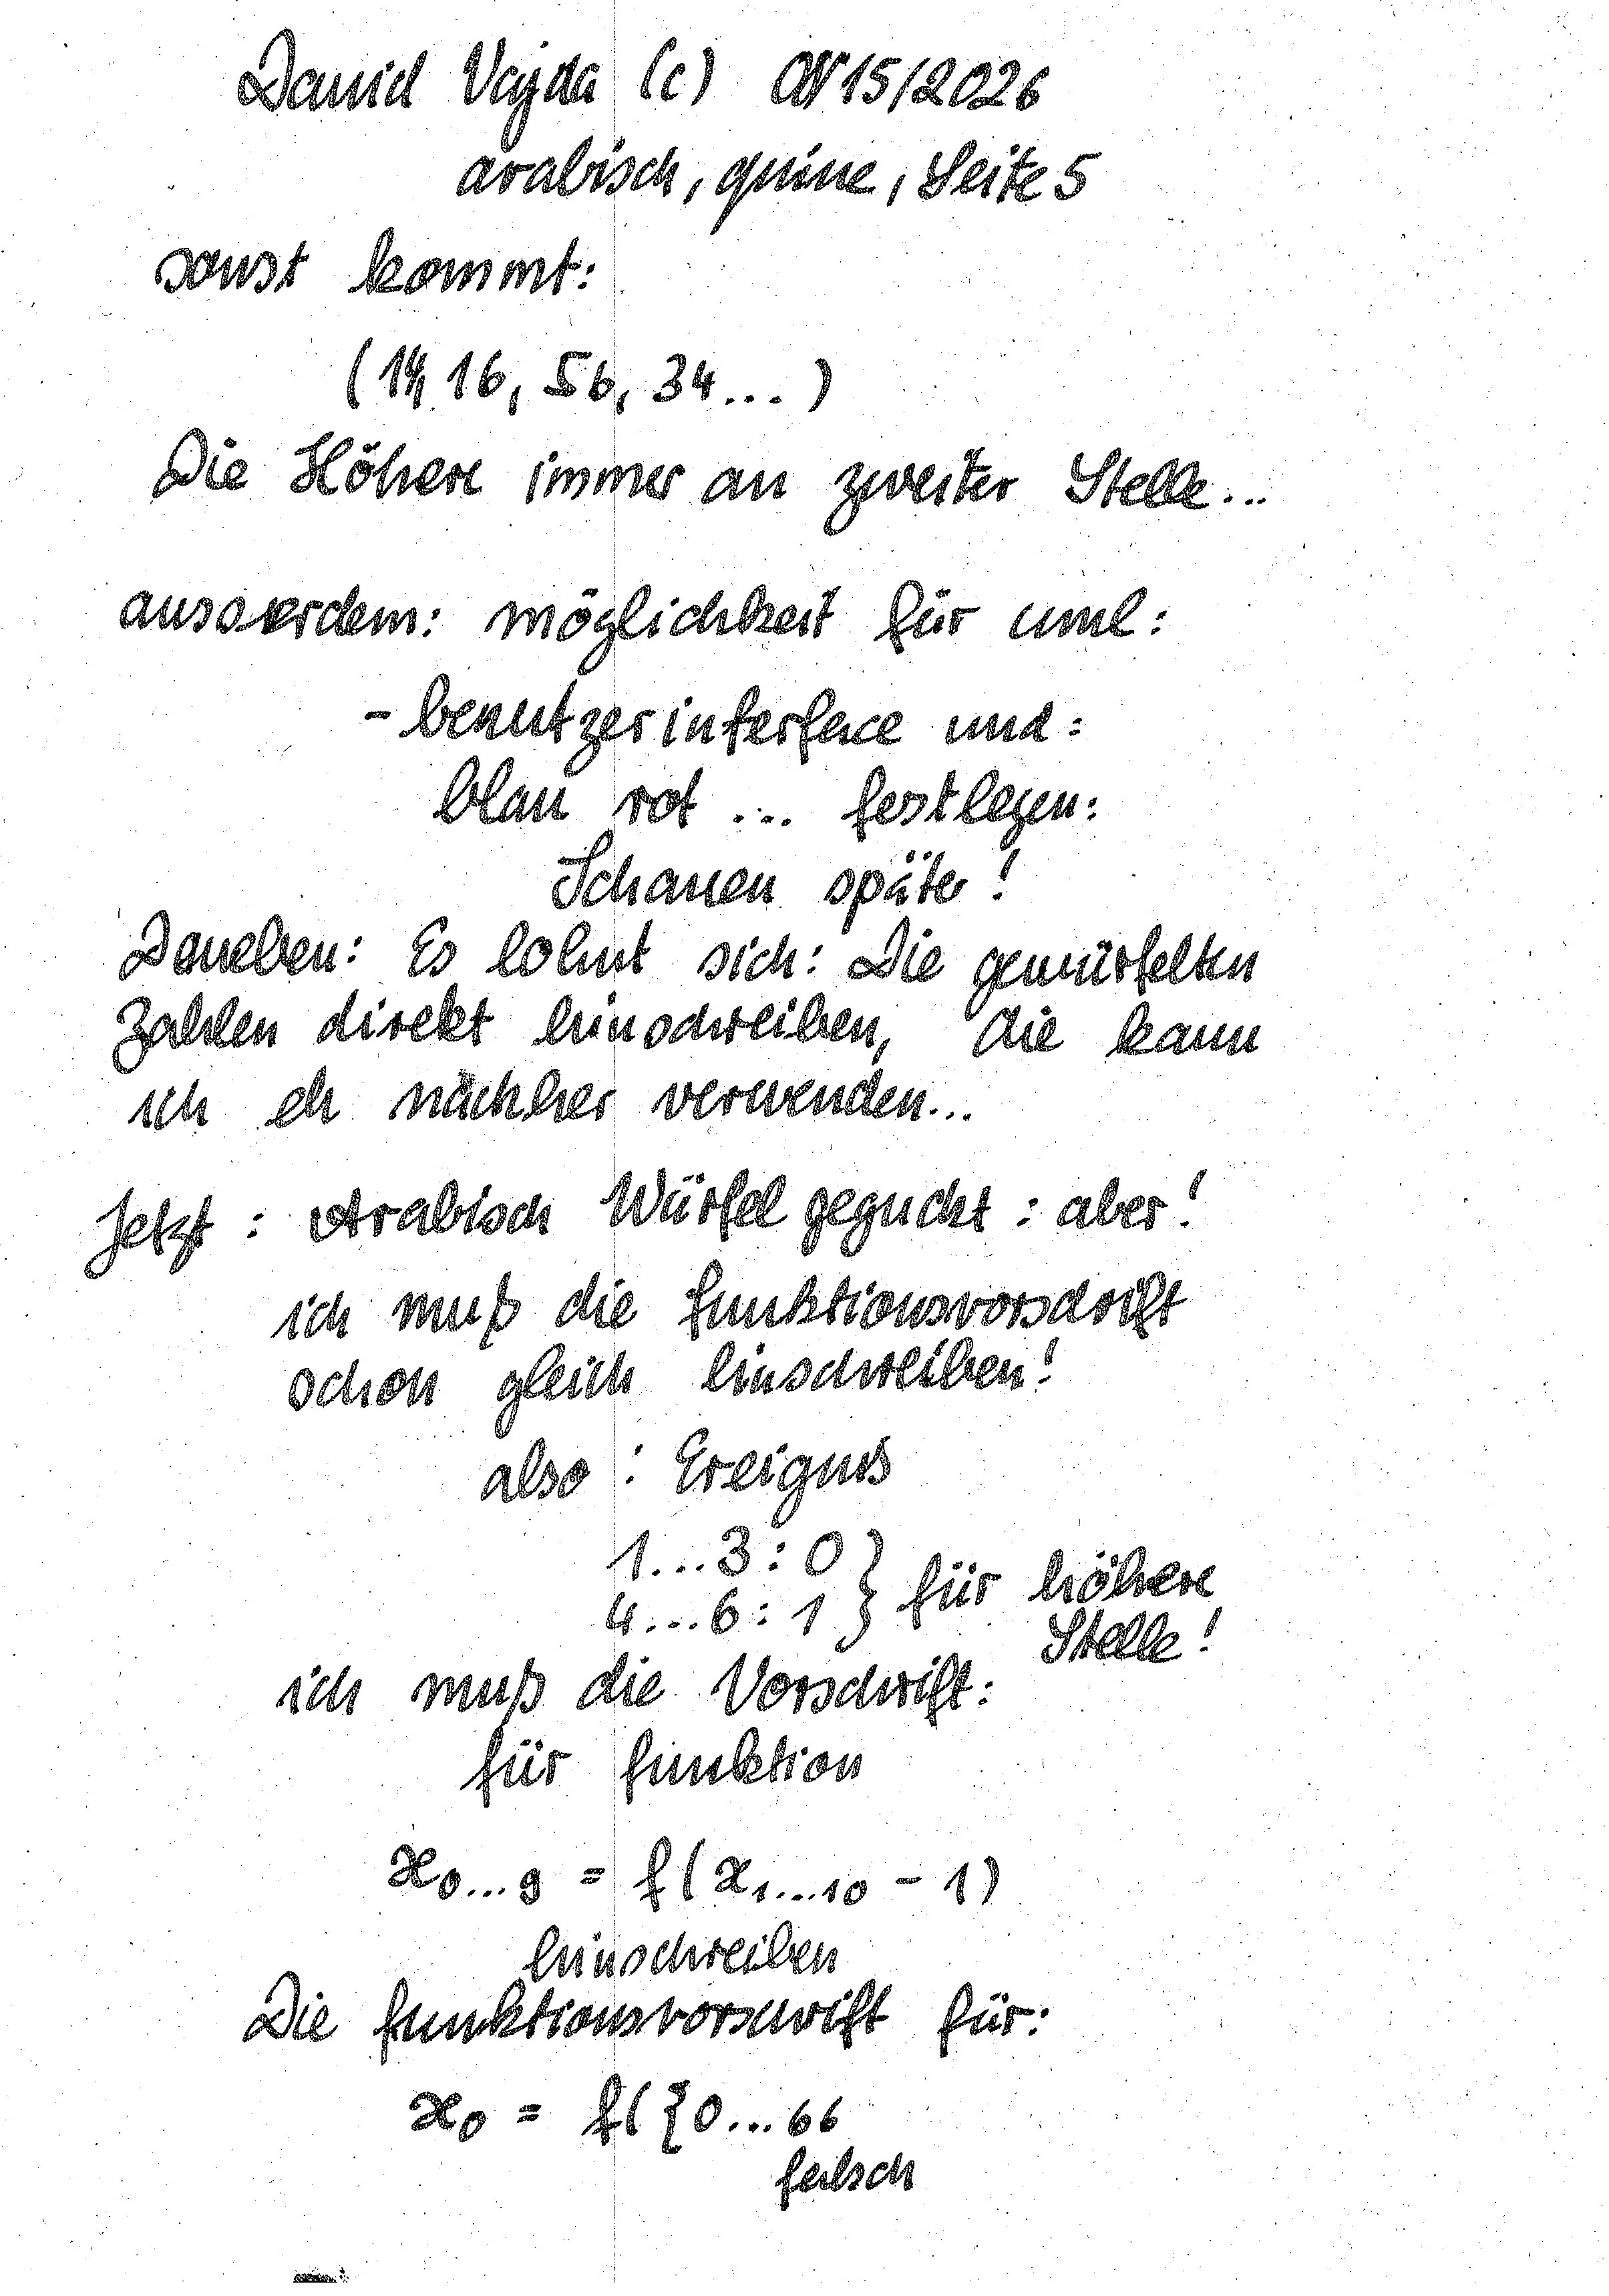 Daniel Vajda (c) ON 15/2026
arabisch, quine, Seite 5
sonst kommt:
(14, 16, 56, 34...)
Die Höhere immer an zweiter Stelle...
ausserdem: möglichkeit für uml:
- benutzerinterface und:
blau rot ... festlegen:
Schauen später!
Daneben: Es lohnt sich: Die gewürfelten
Zahlen direkt hinschreiben, die kann
ich eh nachher verwenden...
Jetzt: Arabisch Würfel geguckt: aber!
ich muß die funktionsvorschrift
schon gleich hinschreiben!
also: Ereignis
1...3: 0 } für höhere
4...6: 1 } Stelle!
ich muß die Vorschrift:
für funktion
x0...9 = f(x1...10 - 1)
hinschreiben
Die funktionsvorschrift für:
x0 = f({0...66
falsch